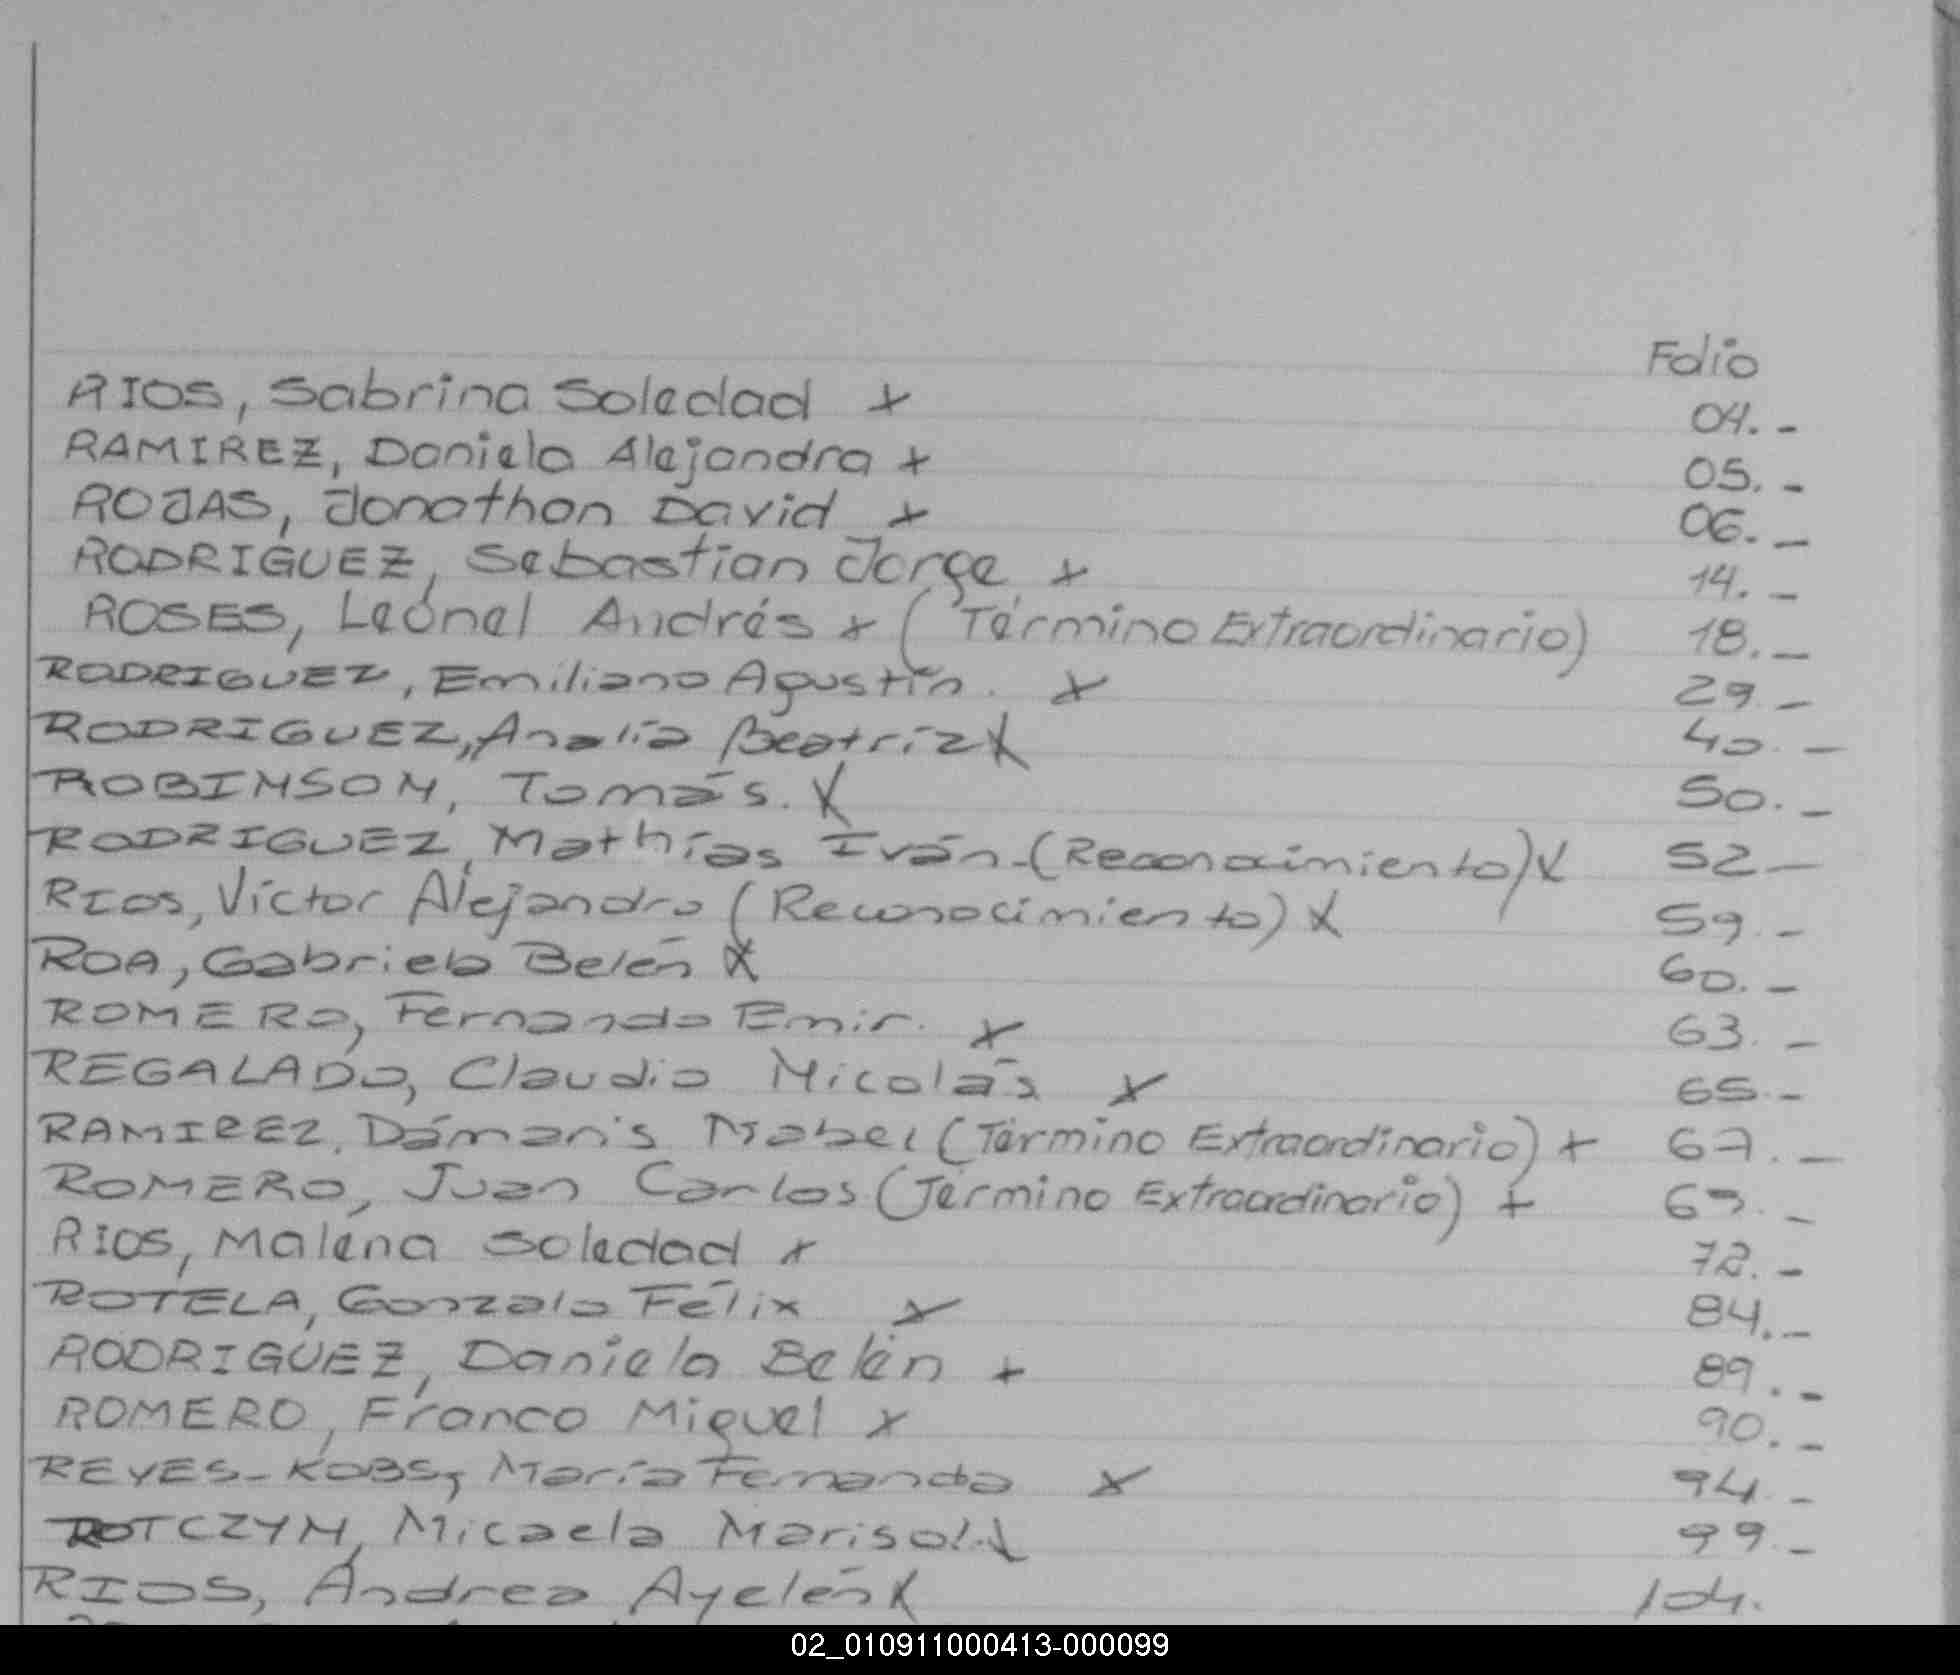 Folio
RIOS, Sabrina Soledad + 04.-
RAMIREZ, Daniela Alejandra + 05.-
ROJAS, Jonathan David + 06.-
RODRIGUEZ, Sebastian Jorge + 14.-
ROSES, Leonel Andrés + (Término Extraordinario) 18.-
RODRIGUEZ, Emiliano Agustín. x 29.-
RODRIGUEZ, Analía Beatriz X 40.-
ROBINSON, Tomás. X 50.-
RODRIGUEZ, Mathías Iván-(Reconocimiento) X 52-
RIOS, Víctor Alejandro (Reconocimiento) X 59.-
ROA, Gabriela Belén X 60.-
ROMERO, Fernando Emir. x 63.-
REGALADO, Claudio Nicolás x 65.-
RAMIREZ, Dámaris Mabel (Término Extraordinario) + 67.-
ROMERO, Juan Carlos (Término Extraordinario) + 69.-
RIOS, Malena Soledad + 72.-
ROTELA, Gonzalo Félix x 84.-
RODRIGUEZ, Daniela Belén + 89.-
ROMERO, Franco Miguel x 90.-
REYES-KOBS, María Fernanda x 94.-
ROTCZYN, Micaela Marisol. X 99.-
RIOS, Andrea Ayelén X 104.
02_010911000413-000099